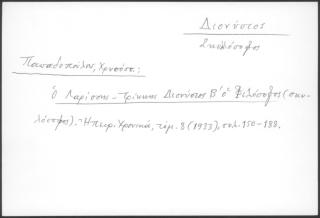 Διονύσιος
Σκυλόσοφος
Παπαδοπούλου, Χρυσόστ.:
Ὁ Λαρίσσης - Τρίκκης Διονύσιος Β' ὁ Φιλόσοφος (σκυ-
λόσοφος). - Ἠπειρ. Χρονικά, τόμ. 8 (1933), σελ. 150-188.